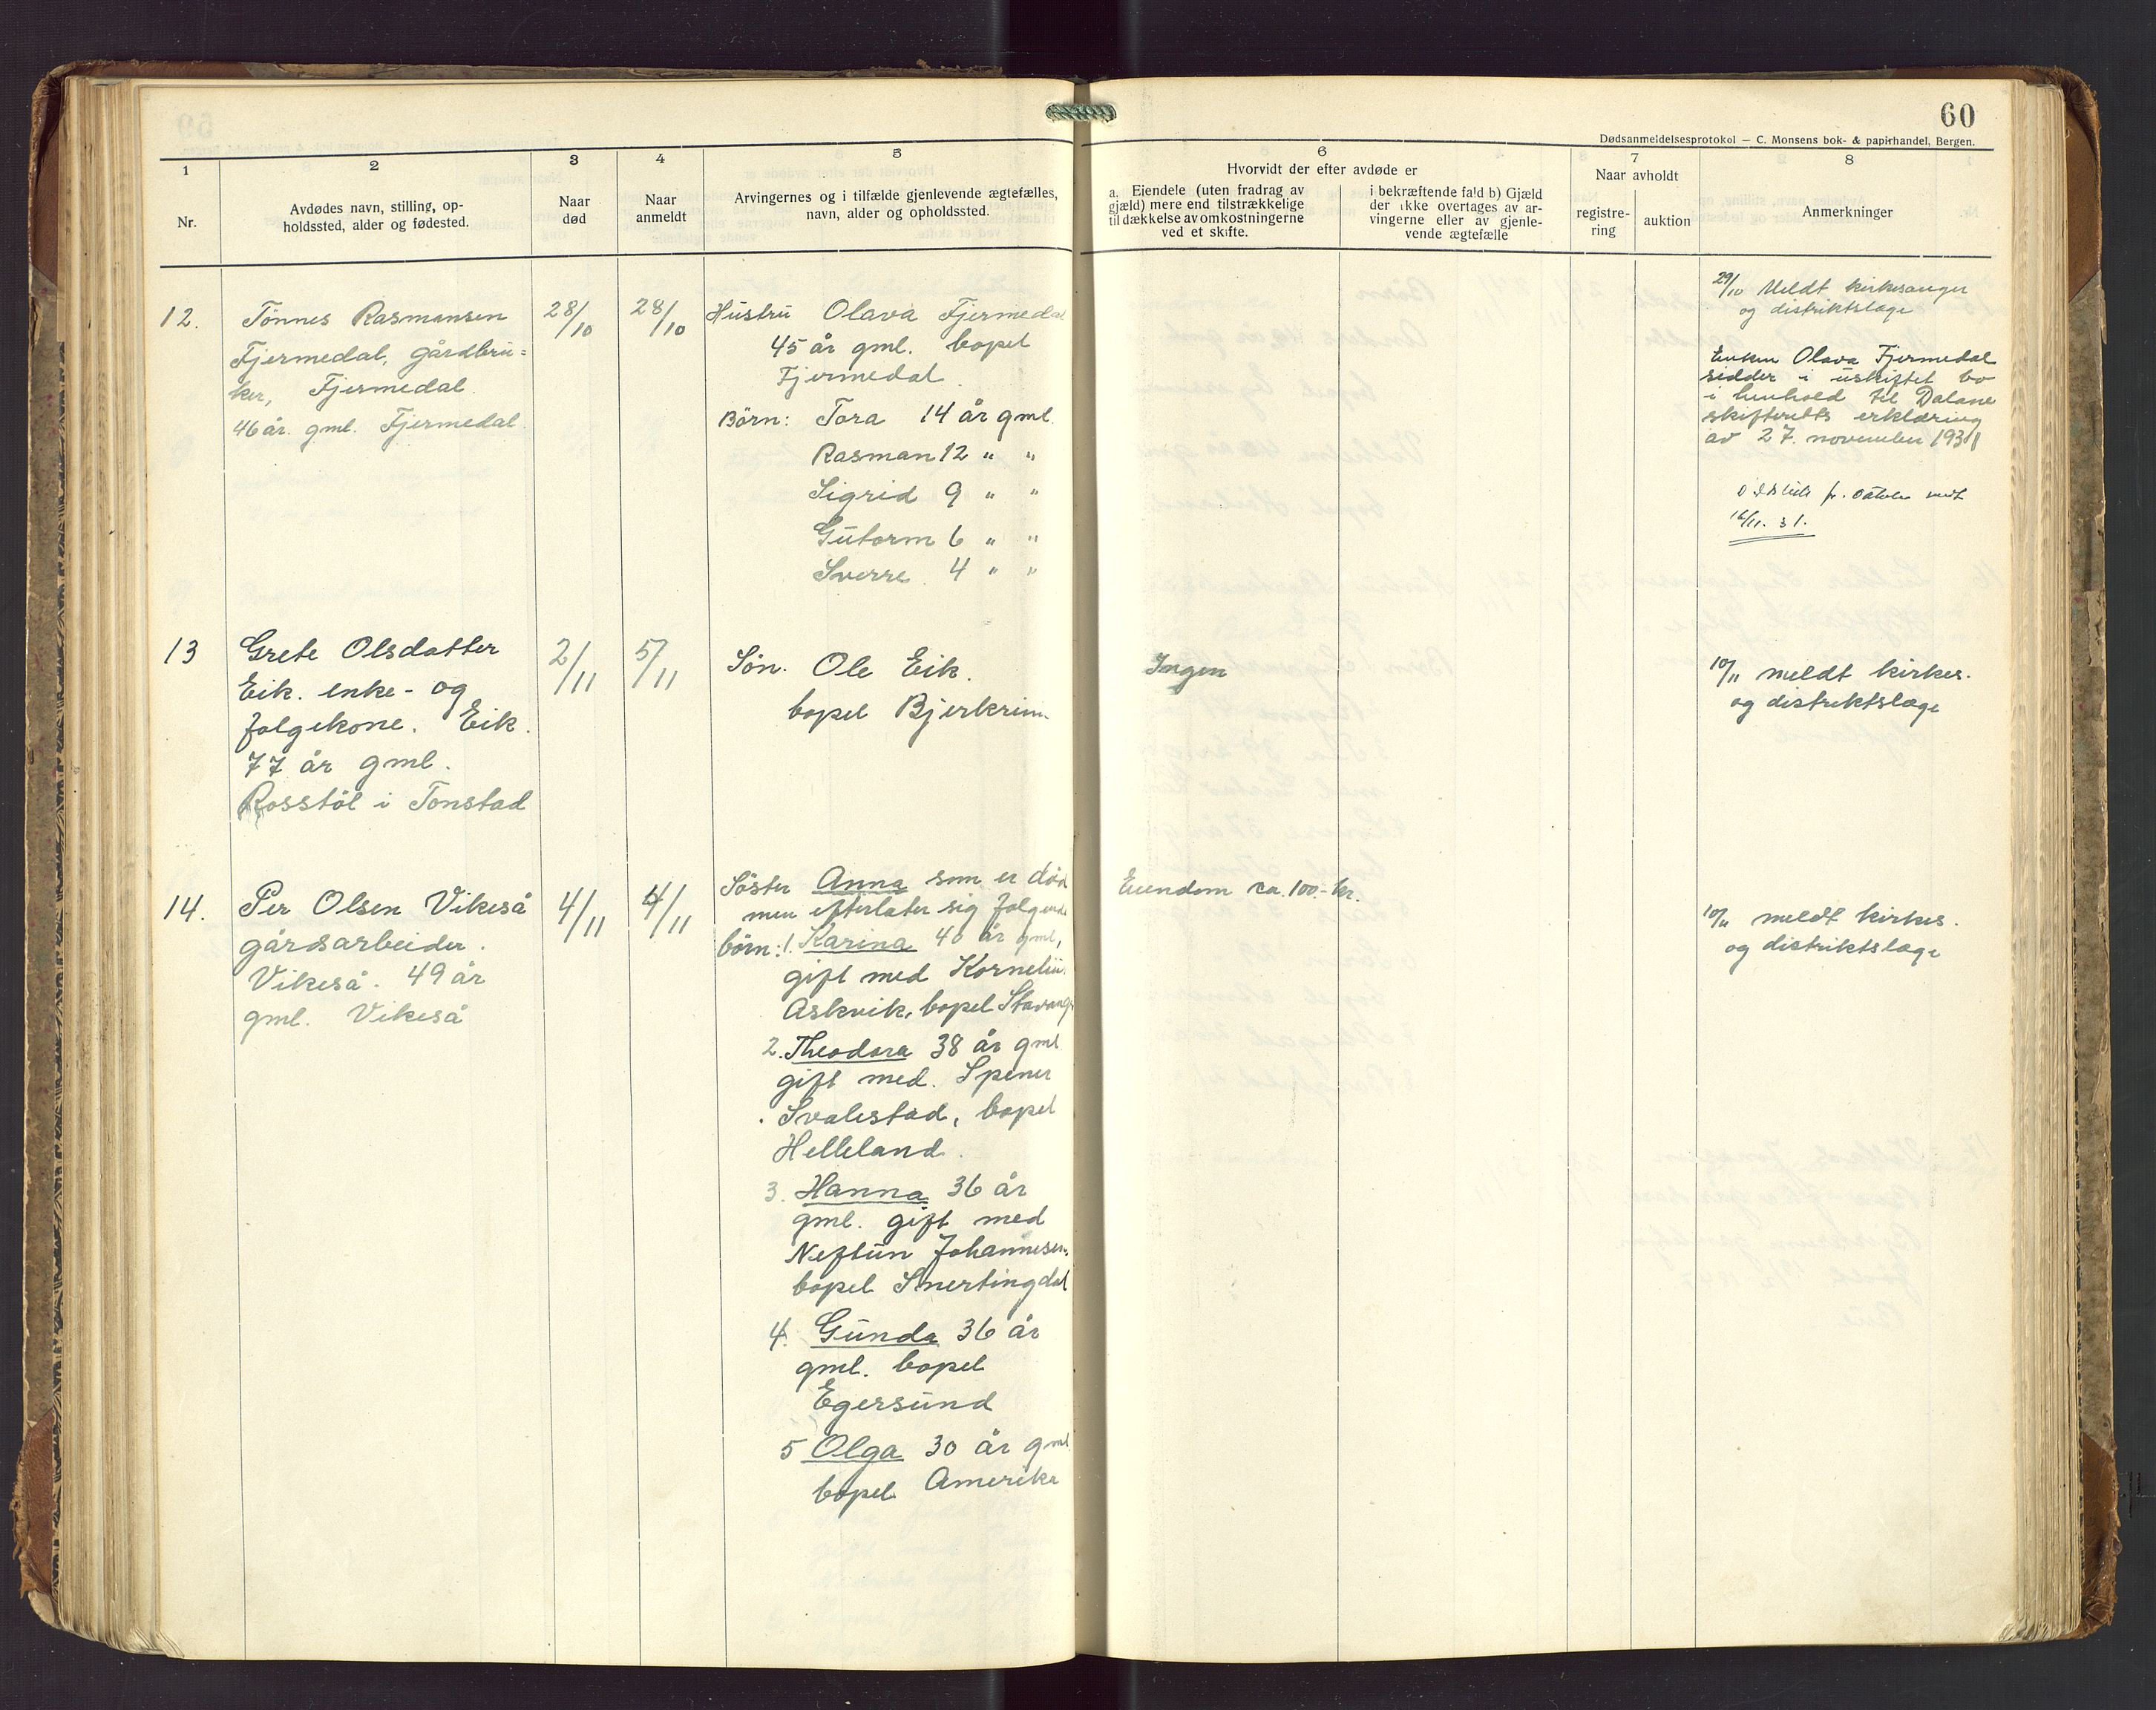 60
Dødsanmeldelsesprotokol — C. Monsens bok- & papirhandel, Bergen.
1
Nr.
2
Avdødes navn, stilling, op-
holdssted, alder og fødested.
3
Naar
død
4
Naar
anmeldt
5
Arvingernes og i tilfælde gjenlevende ægtefælles,
navn, alder og opholdssted.
6
Hvorvidt der efter avdøde er
a. Eiendele (uten fradrag av
gjæld) mere end tilstrækkelige
til dækkelse av omkostningerne
ved et skifte.
i bekræftende fald b) Gjæld
der ikke overtages av ar-
vingerne eller av gjenle-
vende ægtefælle
7
Naar avholdt
registre-
ring
auktion
8
Anmerkninger
12.
Tönnes Rasmussen
Fjermedal, gårdbru=
ker, Fjermedal.
46 år. gml. Fjermedal.
28/10
28/10
Hustru Olava Fjermedal
45 år gml. bopel
Fjermedal.
Börn: Tora 14 år gml.
Rasman 12 " "
Sigrid 9 " "
Gutorm 6 " "
Sverre. 4 " "
29/10 Meldt kirkesanger
og distriktslæge
Enken Olava Fjermedal
sidder i uskiftet bo
i henhold til Dalane
skifteretts erklæring
av 27. november 1931
16/11. 31.
13
Grete Olsdatter
Eik. enke- og
folgekone. Eik.
77 år gml.
Rosstöl i Tonstad
2/11
5/11
Sön. Ole Eik.
bopel Bjerkreim.
Ingen
10/11 meldt kirkes.
og distriktslæge
14.
Per Olsen Vikeså
gårdsarbeider.
Vikeså. 49 år
gml. Vikeså
4/11
4/11
Söster Anna som er död
men efterlater sig folgende
börn: 1. Karina 40 år gml,
gift med Kornelius
Askvik, bopel Stavanger
2. Theodora 38 år gml
gift med. Spener
Svalestad, bopel
Helleland.
3. Hanna 36 år
gml. gift med
Neftun Johannesen.
bopel Smertingdal
4. Gunda 36 år
gml. bopel
Egersund
5 Olga 30 år gml
bopel Amerika
Eiendom ca. 100.- kr.
10/11 meldt kirkes.
og distriktslæge